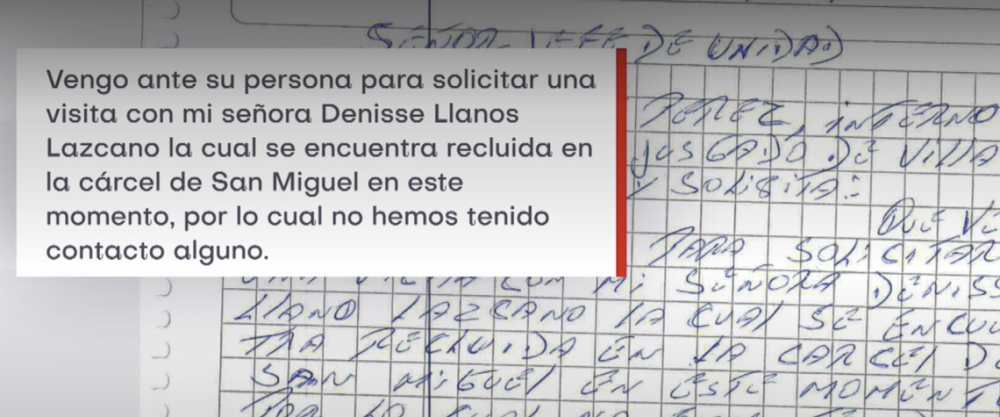 SEÑOR JEFE DE UNIDAD
Vengo ante su persona para solicitar una
visita con mi señora Denisse Llanos
Lazcano la cual se encuentra recluida en
la cárcel de San Miguel en este
momento, por lo cual no hemos tenido
contacto alguno.
PEREZ, INTERNO
JUSGADO DE VILLA
Y SOLISITA:
QUE VE
PARA SOLICITAR
UNA VISITA CON MI SEÑORA DENISS
LLANO LAZCANO LA CUAL SE ENCUE
TRA RECLUIDA EN LA CARCEL D
SAN MIGUEL EN ESTE MOMENT
POR LO CUAL NO